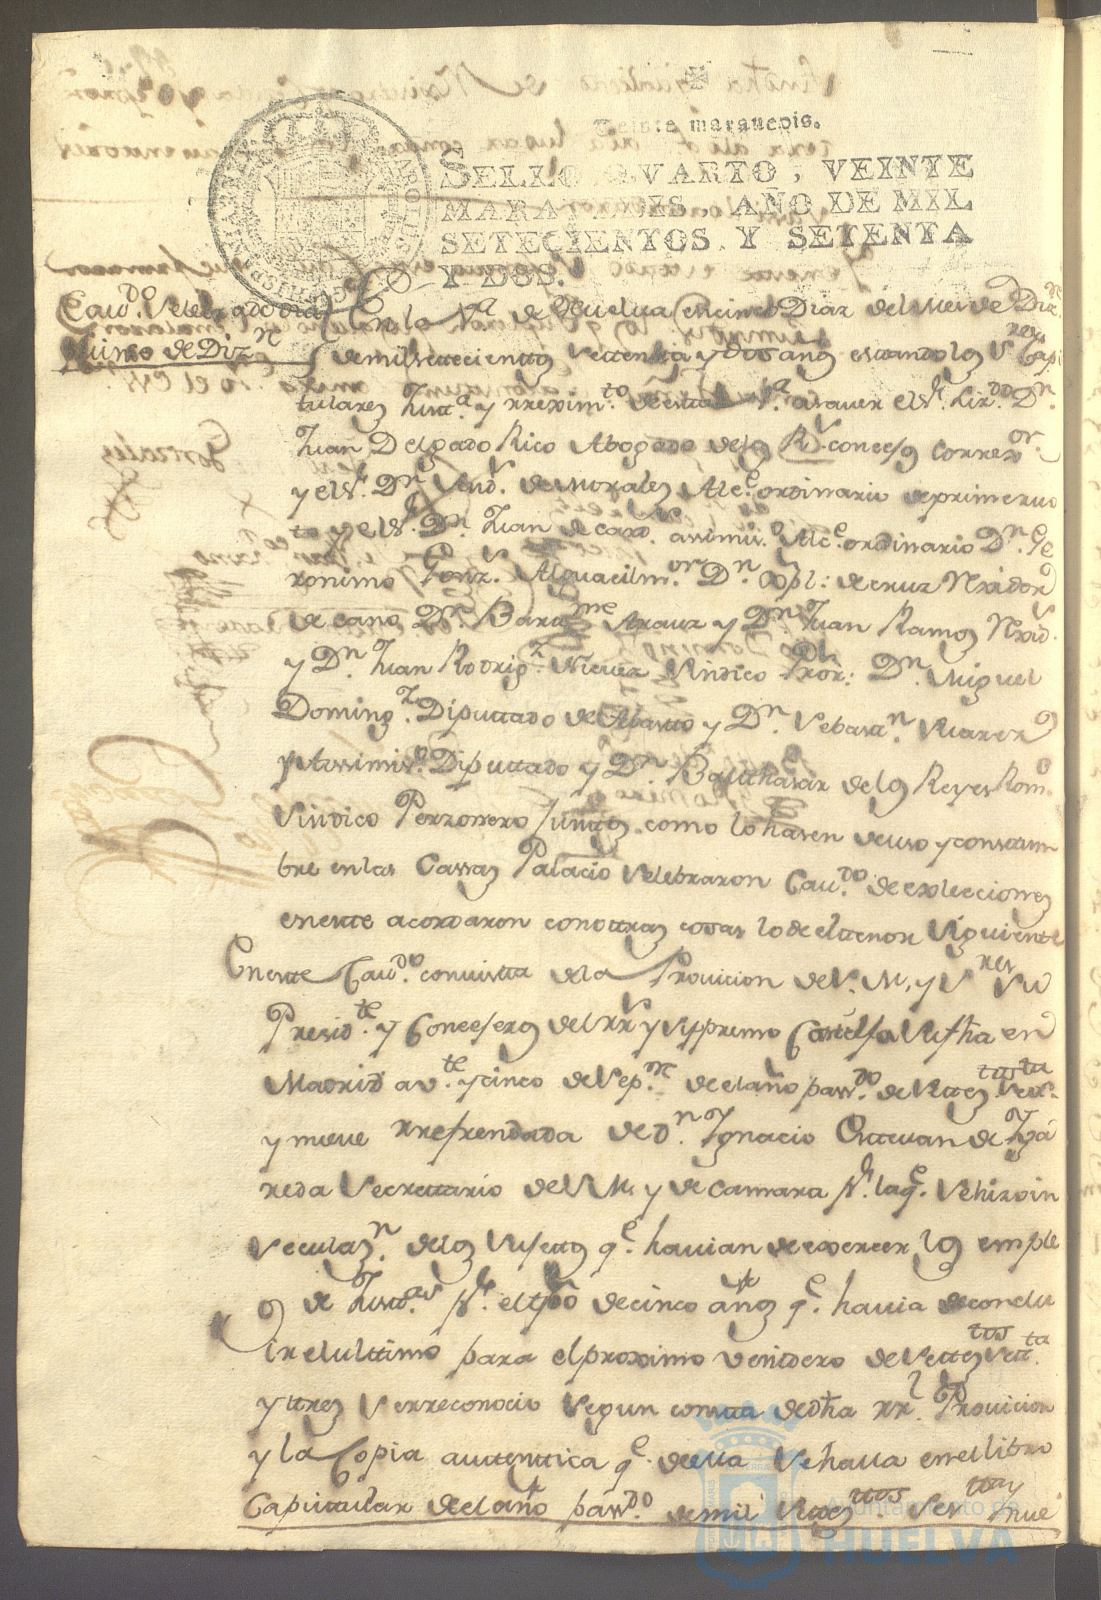 Veinte maravedis.
SELLO QVARTO, VEINTE
MARAVEDIS, AÑO DE MIL
SETECIENTOS, Y SETENTA
Y DOS.
Cavdo. Velebrado dia
Quinse de Dizn
En la Va de Huelva en Dias del Mes de Dizn
de mill settecienttos Vettentta y dos anos estando los Vres Capi
tulares Justa. y rreximto. de estta Va asauer el Vr. Lizdo. Dn.
Juan Delgado Rico Abogado de los Rs. concesos Correxor
y el Vr. Dn. de Morales Alce. ordinario de primer vo
to y el Vr. Dn. Juan de assimismo Alce. ordinario Dn. Ge
ronimo Gonz. Alguacil mor. Dn. Xpl: de cruz Rexidor
de cano Dn. Barme Arauz y Dn Juan Ramos Rexid.
y Dn. Juan Rodrigz. Vindico Pror: Dn. Miguel
Domingz. Diputtado de Abastto y Dn. Vebastn. Vuarez
y Assimismo. Diputtado y Dn. Balthasar de los Reyes Romo
Vindico Perzonero Junttos como lo hasen de uso y consttum
bre en las Cassas Palacio Velebraron Cavdo. de exlecciones
en estte acordaron con ottras cosas lo de el ttenor Viguiente
En estte Cavdo. con vistta de la Provicion de V. M. y Vres Vu
Presidte. y Concejeros del Rl y Vupremo Consejo Vu fha en
Madrid a vte. y cinco de Vepn. de el año passdo. de Vettesttos Vesta
y nueve rrefrendada de Dn. Ygnacio Esttevan de Yga
reda Vecrettario de V. M. y de Camara pr. la qe. Ve hizo in
Veculazn. de los Vusettos qe. havian de exercer los emple
os de Justas pr. el tpo de cinco años qe. havia de conclu
ir el ulttimo para el proximo venidero de Vettesttos Vettta
y ttres Ve rreconocio Vegun constta de dha rrl. Provicion
y la Copia auttenttica qe. de ella Ve halla en el libro
Capittular de el año passdo. de mil Vettesttos. Vesttay nue
Ayuntamiento de
HUELVA